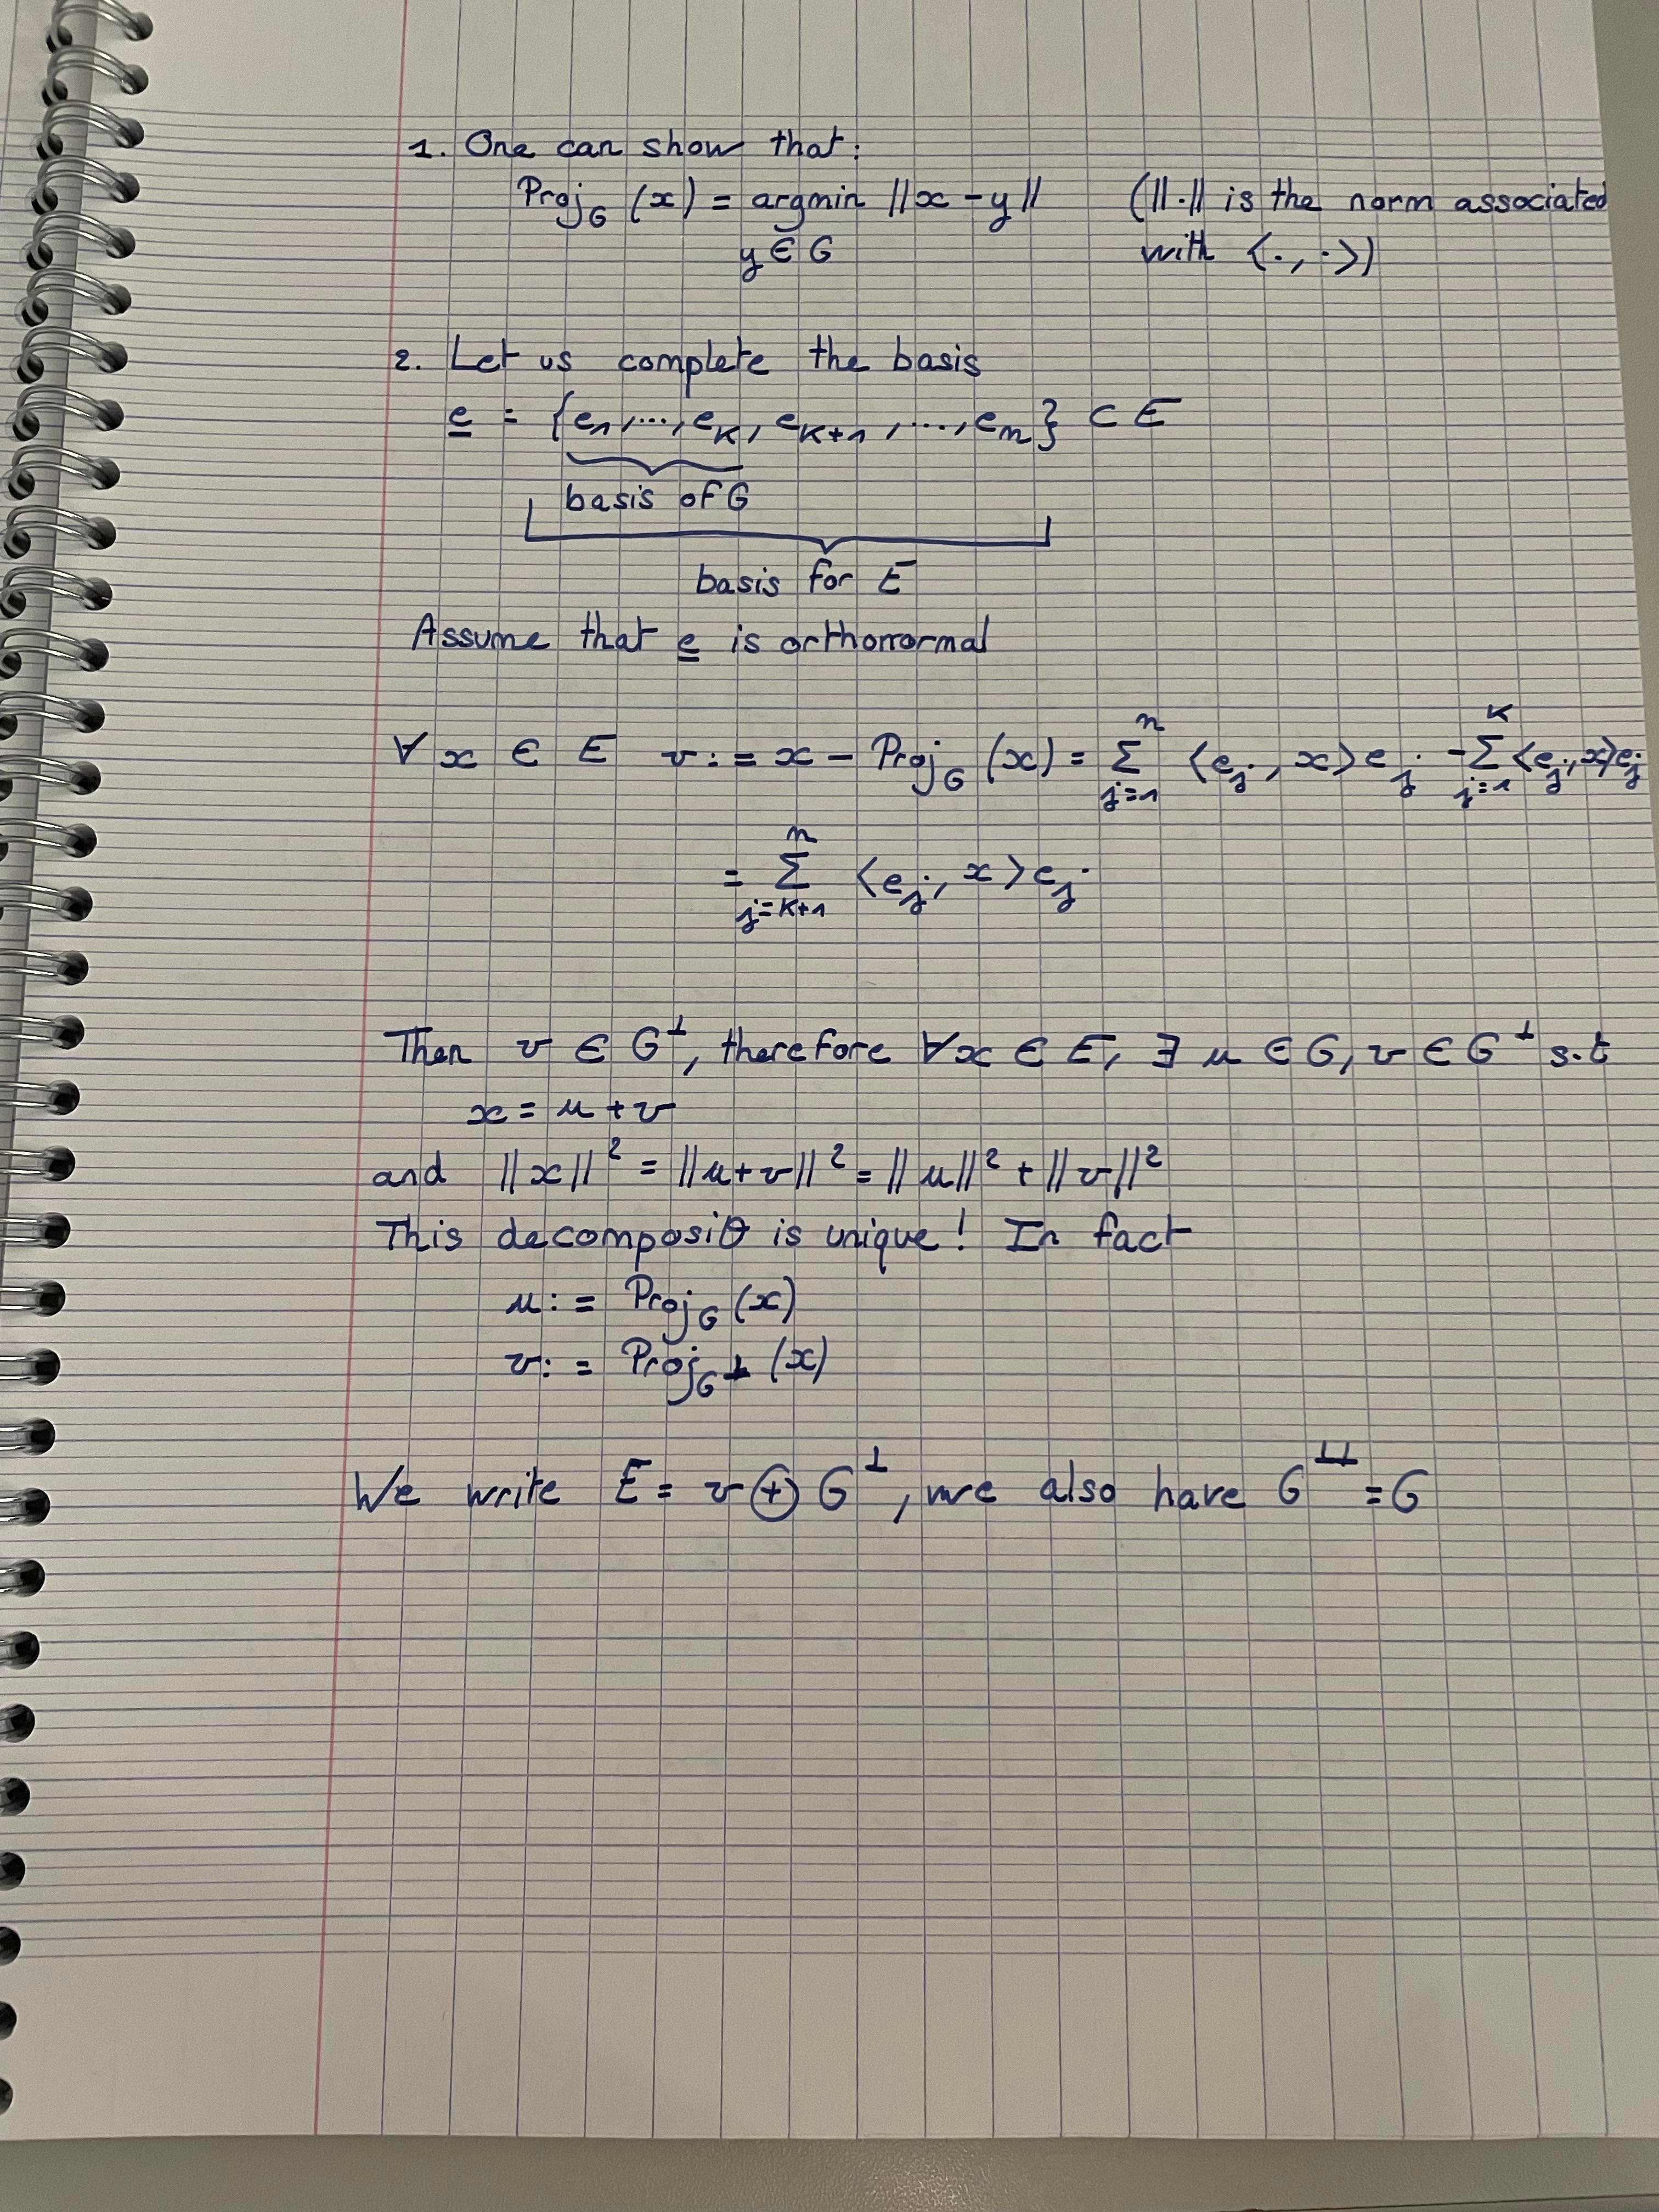 1. One can show that:
Proj_G (x) = argmin ||x - y|| (||.|| is the norm associated
y ∈ G with <., .>)
2. Let us complete the basis
e = {e_1, ..., e_k, e_{k+1}, ..., e_n} ⊂ E
basis of G
basis for E
Assume that e is orthonormal
∀ x ∈ E v := x - Proj_G (x) = Σ_{j=1}^n <e_j, x> e_j - Σ_{j=1}^k <e_j, x> e_j
= Σ_{j=k+1}^n <e_j, x> e_j
Then v ∈ G^⊥, therefore ∀x ∈ E, ∃ u ∈ G, v ∈ G^⊥ s.t
x = u + v
and ||x||² = ||u+v||² = ||u||² + ||v||²
This decomposiθ is unique! In fact
u := Proj_G (x)
v := Proj_{G^⊥} (x)
We write E = v ⊕ G^⊥, we also have G^{⊥⊥} = G